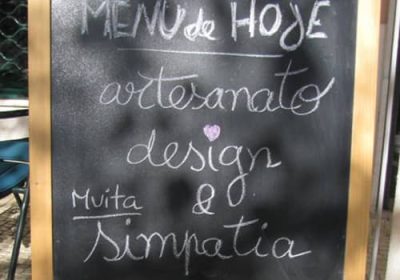 MENU de HOJE
artesanato
design
Muita &
simpatia